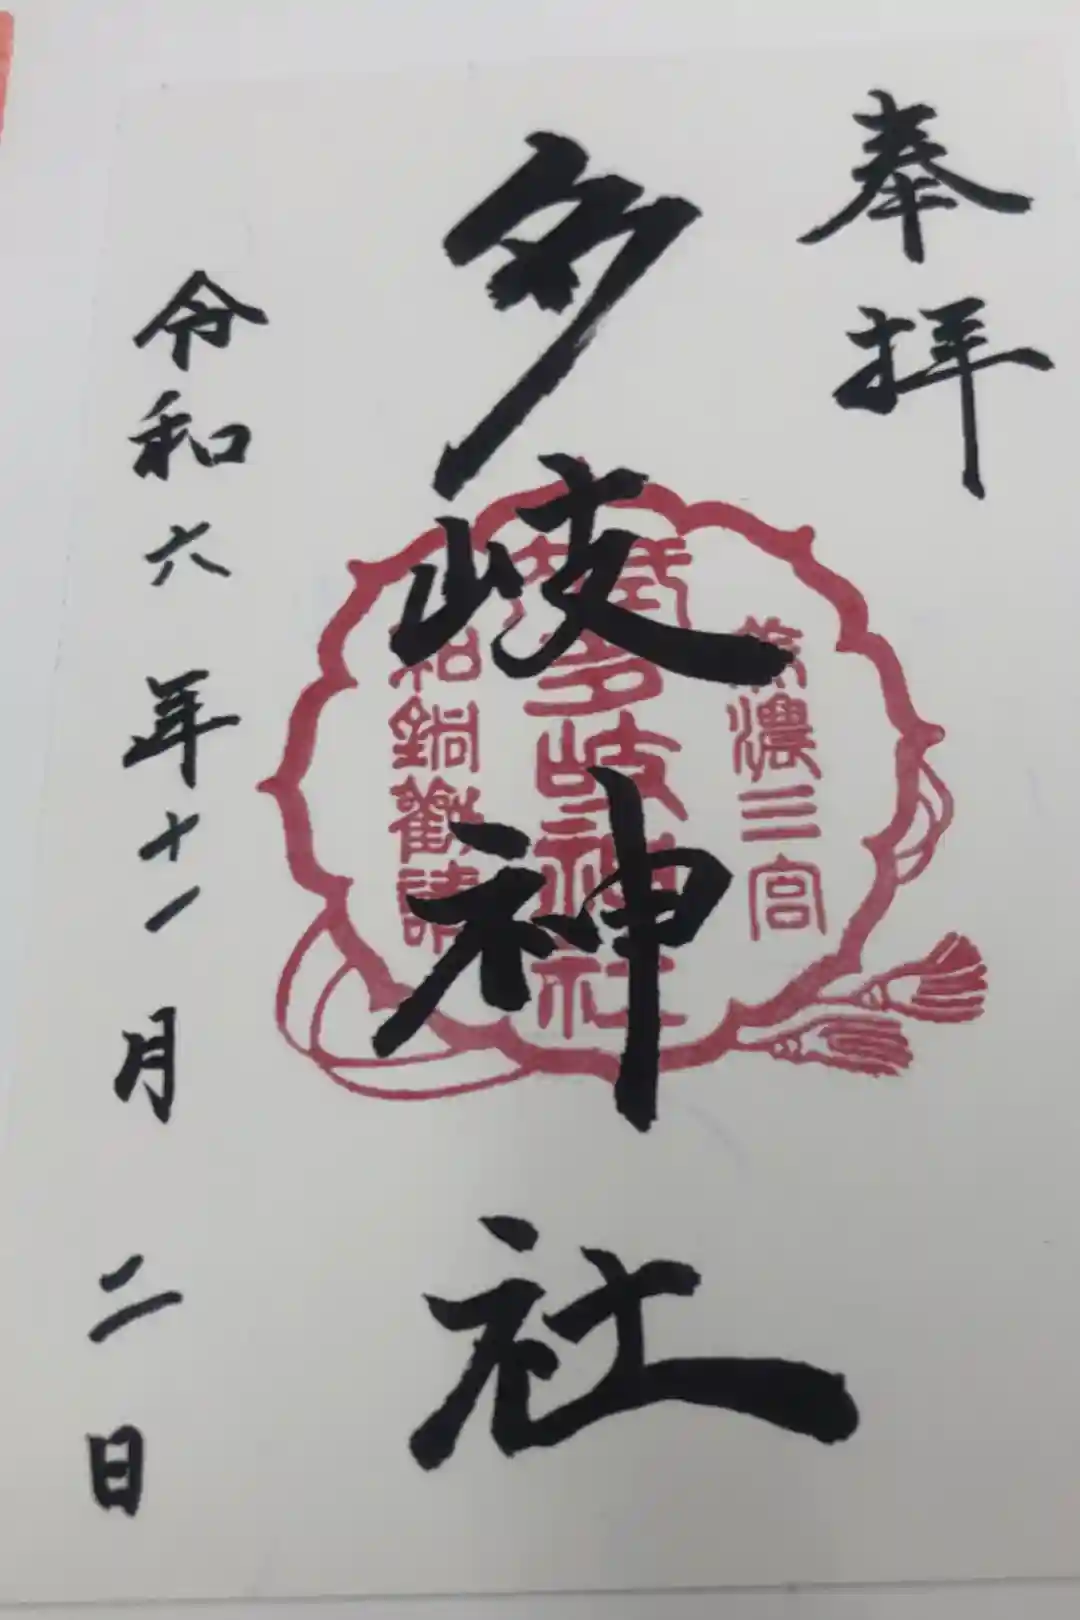 奉拝
多岐神社
令和六年十一月二日
美濃三宮
多岐神社
和銅勸請